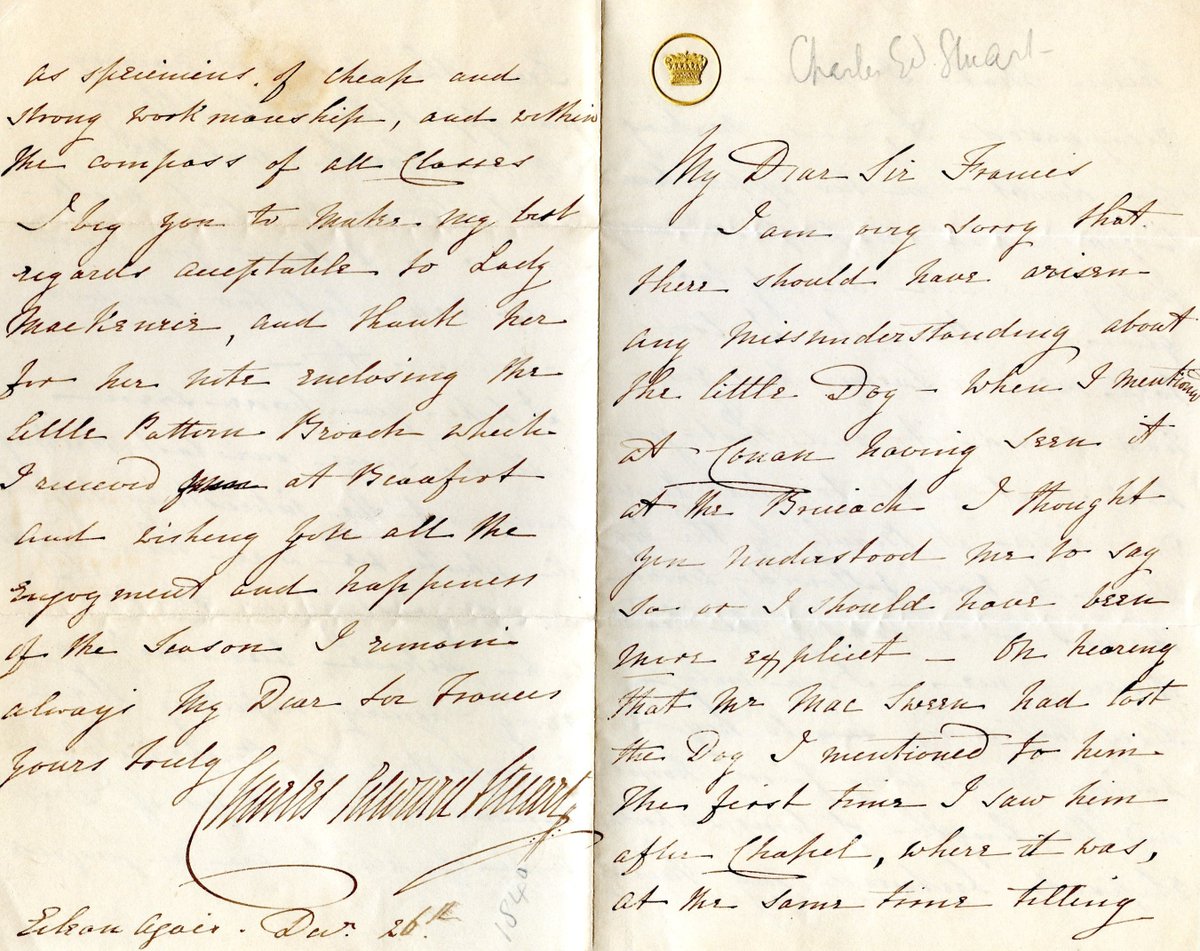 Charles Ed. Stuart
My Dear Sir Francis
I am very sorry that
there should have arisen
any missunderstanding about
the little Dog – when I mentioned
at Conan having seen it
at the Bruiach I thought
you understood me to say
so or I should have been
more explicit – On hearing
that Mr Mac Sween had lost
the Dog I mentioned to him
the first time I saw him
after Chapel, where it was,
at the same time telling
as specimens of cheap and
strong workmanship, and within
the compass of all Classes
I beg you to make my best
regards acceptable to Lady
MacKenzie, and thank her
for her note enclosing the
little Pattern Broach which
I received at Beaufort
and wishing you all the
Enjoyment and happiness
of the Season I remain
always My Dear Sir Francis
yours truly
Charles Edward Stuart
Eilean Agais. Decr. 26th
1840